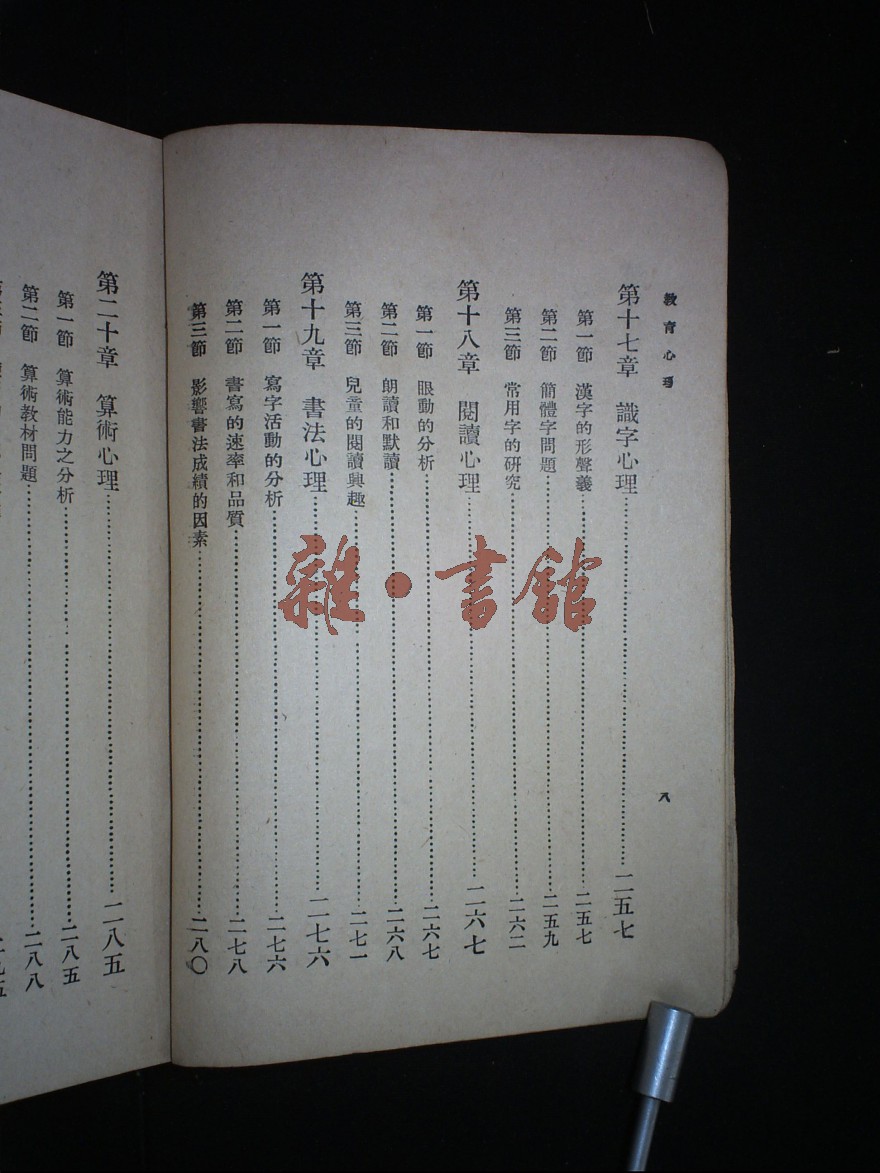 教育心理
八
第十七章 識字心理……二五七
第一節 漢字的形聲義……二五七
第二節 簡體字問題……二五九
第三節 常用字的研究……二六二
第十八章 閱讀心理……二六七
第一節 眼動的分析……二六七
第二節 朗讀和默讀……二六八
第三節 兒童的閱讀興趣……二七一
第十九章 書法心理……二七六
第一節 寫字活動的分析……二七六
第二節 書寫的速率和品質……二七八
第三節 影響書法成績的因素……二八〇
第二十章 算術心理……二八五
第一節 算術能力之分析……二八五
第二節 算術教材問題……二八八
雜·書館